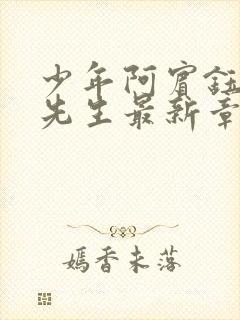 少年阿宾钰
先生最新章
嫣香未落